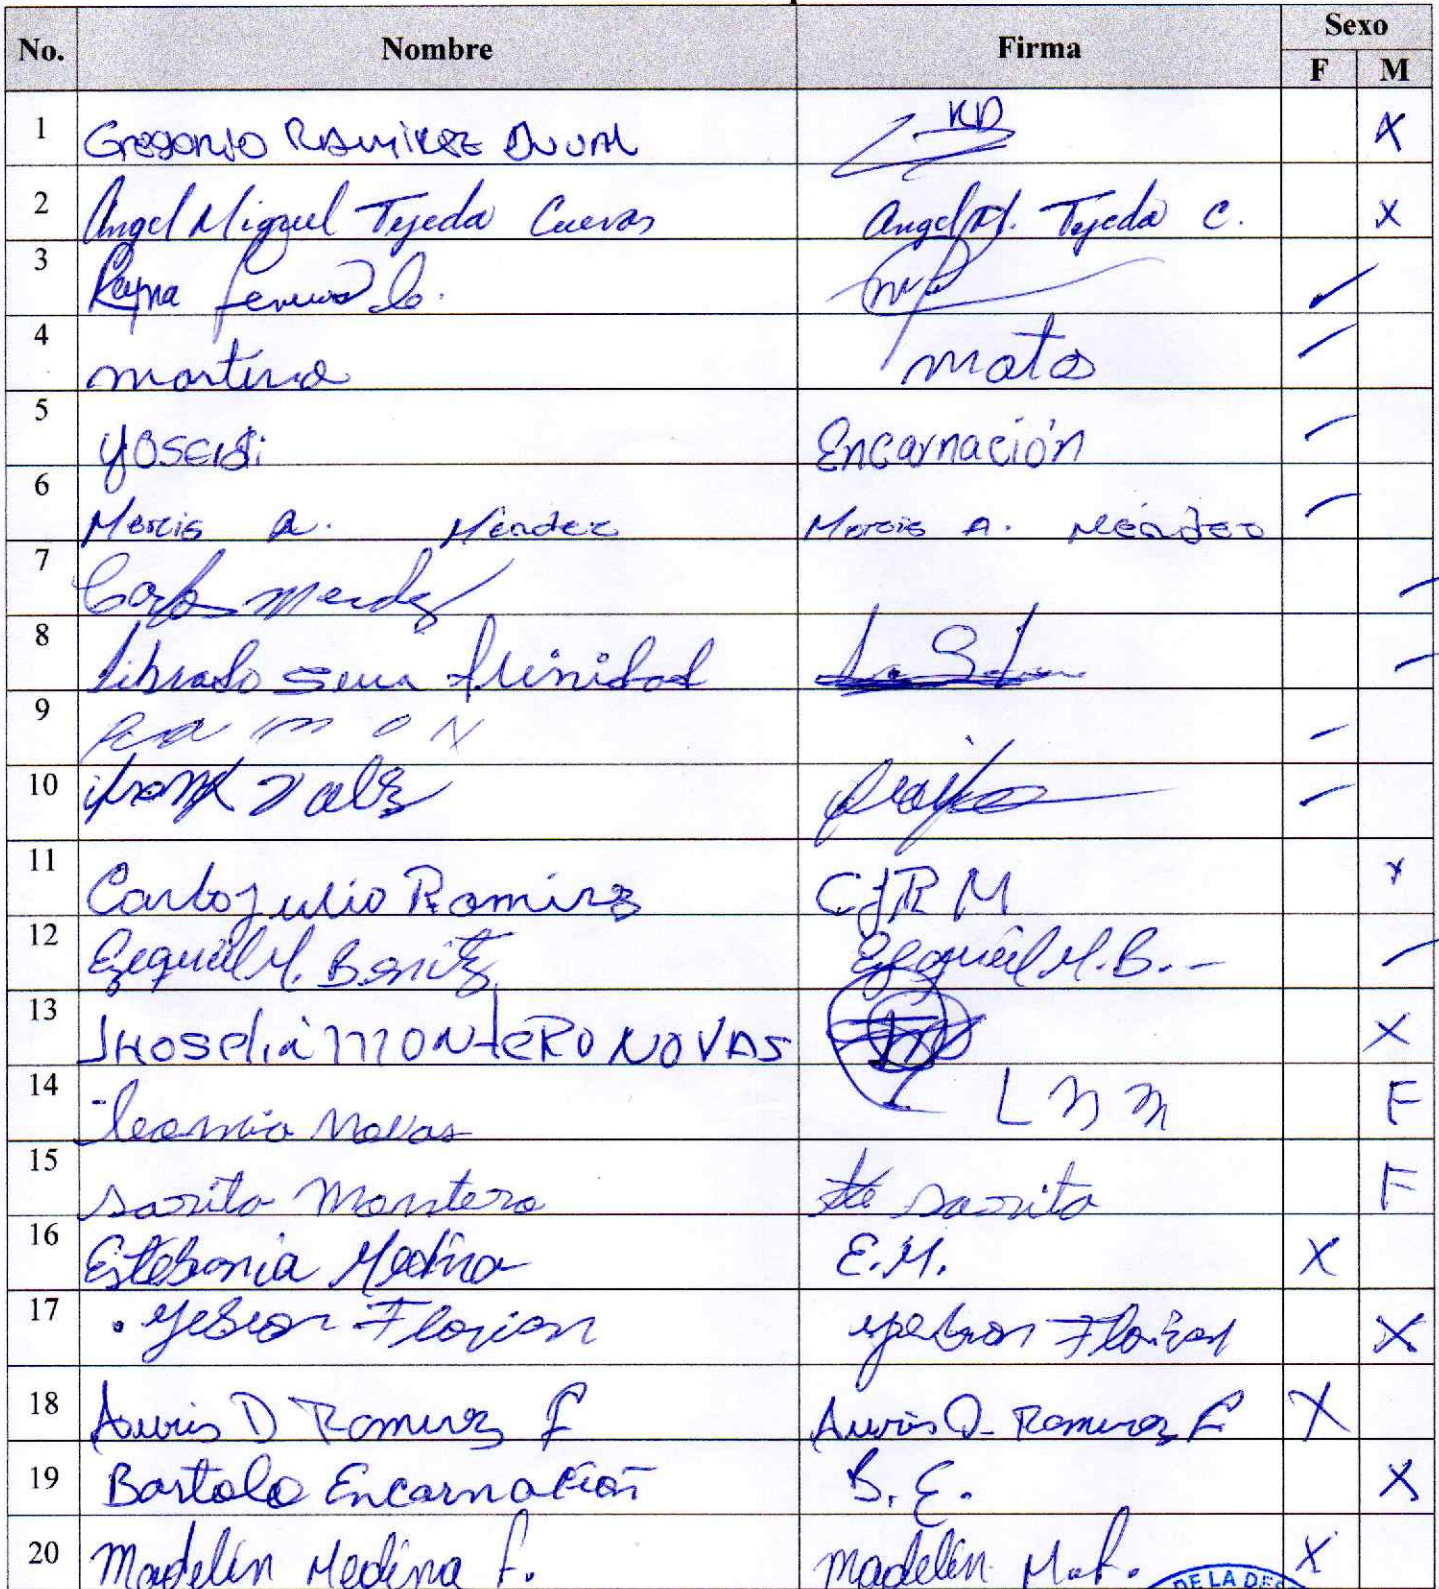 No. Nombre Firma Sexo
F M
1 Gregorio Ramirez Duval RD X
2 Angel Miguel Tejeda Cuevas Angel M. Tejeda C. X
3 Reyna
4 martina matos
5 yoseidi Encarnación
6 Mercis A. Méndez Mercis A. Méndez
7 Carlos Mendez
8 Librado Sena trinidad
9 Ramon
10 frank
11 Carlos Julio Ramirez CJRM X
12 Ezequiel M. Benitez Ezequiel M. B.-
13 JHOSELIA MONTERO NOVAS X
14 leonicia Novas L N N F
15 Sarita Montero Sarita F
16 Estebania Medina E.M. X
17 . yeison Florian Florian X
18 Auris D Ramirez F Auris D. Ramirez F X
19 Bartolo Encarnación B.E. X
20 Madelin Medina F. madelin M.F. X
DE LA DES